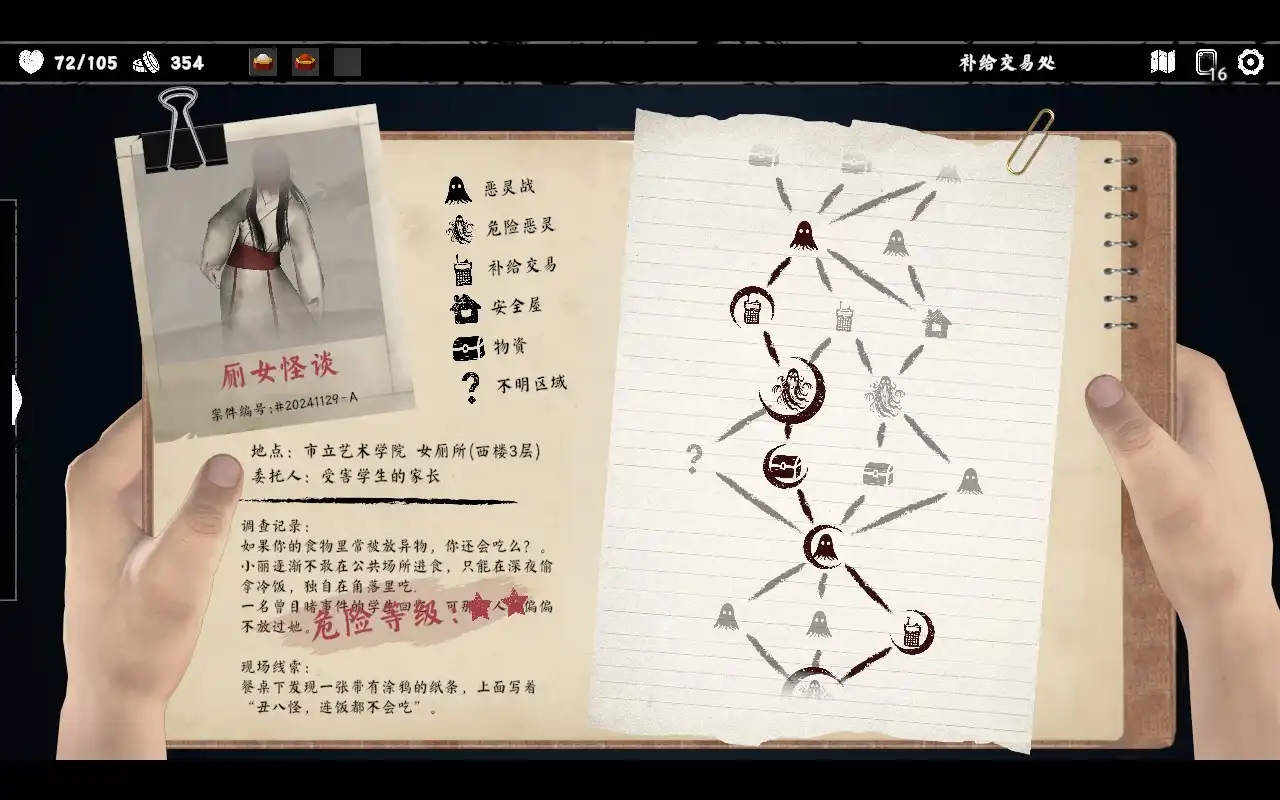 72/105
354
补给交易处
16
恶灵战
危险恶灵
补给交易
安全屋
物资
不明区域
厕女怪谈
案件编号:#20241129-A
地点: 市立艺术学院 女厕所(西楼3层)
委托人: 受害学生的家长
调查记录:
如果你的食物里常被放异物, 你还会吃么? 。
小丽逐渐不敢在公共场所进食, 只能在深夜偷
拿冷饭, 独自在角落里吃.
一名曾目睹事件的学生回忆, 可那 人 偏偏
不放过她。
危险等级: ★★
现场线索:
餐桌下发现一张带有涂鸦的纸条, 上面写着
“丑八怪, 连饭都不会吃” 。